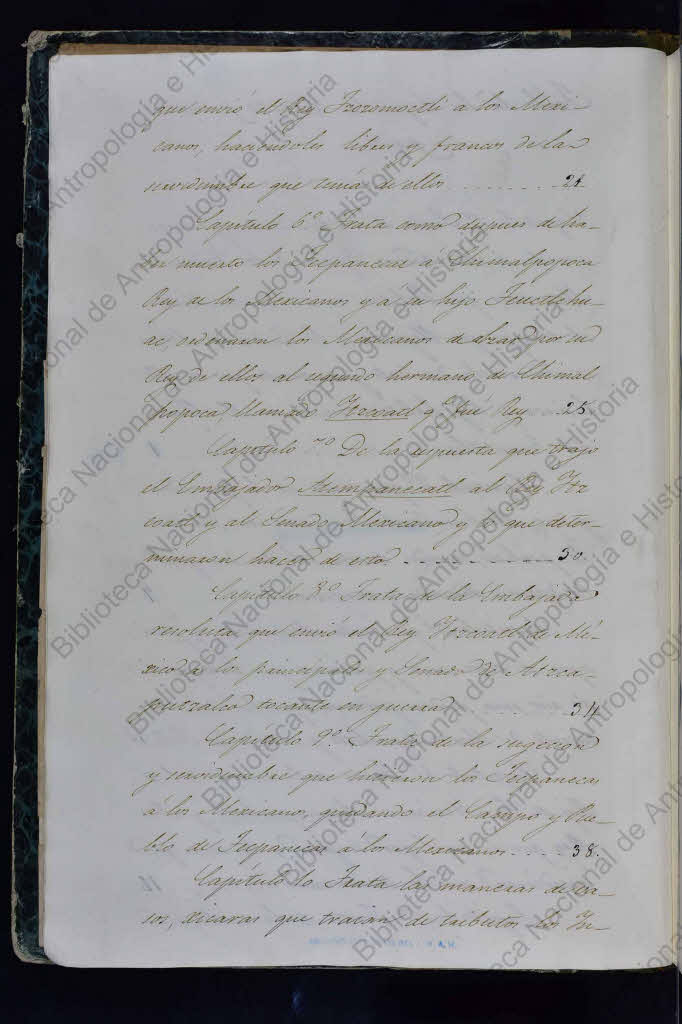 que envió el Rey Tzozomoctli a los Mexi-
canos, haciendoles libres y francos de la
servidumbre que tenia de ellos . . . . . . . . 21.
Capítulo 6º Trata como despues de ha-
ber muerto los Tecpanecas á Chimalpopoca
Rey de los Mexicanos y á su hijo Teuctlehu-
ac, ordenaron los Mexicanos de alzar por su
Rey de ellos al segundo hermano de Chimal
popoca, llamado Itzcoatl q.e fué Rey . . 25.
Capítulo 7º De la respuesta que trajo
el Embajador Atempanecatl al Rey Itz
coatl y al Senado Mexicano y lo que deter-
minaron hacer de esto. . . . . . . . . . 30.
Capítulo 8º Trata de la Embajada
resoluta que envió el Rey Itzcoatl de Mé-
xico á los principales y Senado de Atzca-
putzalco tocante en guerra . . . . . . 34
Capítulo 9º. Trata de la sugecion
y servidumbre que hicieron los Tecpanecas
á los Mexicanos, quedando el Campo y Pue-
blo de Tecpanecas á los Mexicanos . . . . 38.
Capítulo 10 Trata las maneras de va-
sos, xicaras que traian de tributos los In-
Biblioteca Nacional de Antropología e Historia